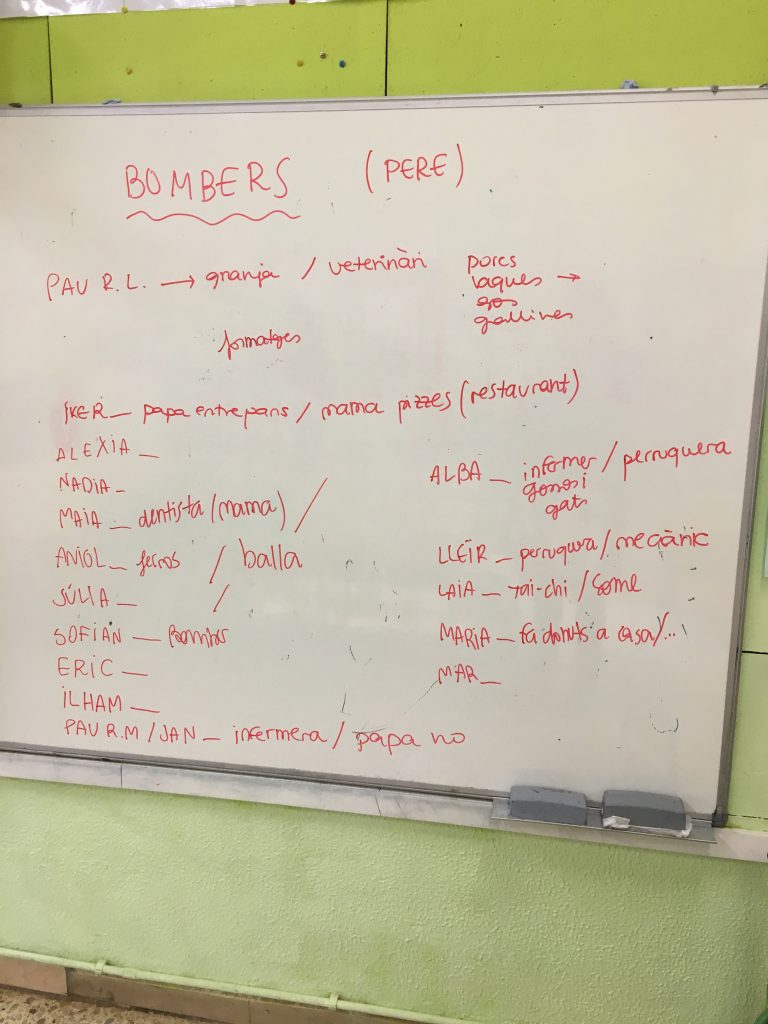 BOMBERS (PERE)
PAU R.L. → granja / veterinàri
porcs
vaques →
gos
gallines
formatges
IKER _ papa entrepans / mama pizzes (restaurant)
ALEXIA _
NADIA _
MAIA _ dentista (mama) /
ANIOL _ ferros / balla
JÚLIA _ /
SOFIAN _
ERIC _
ILHAM _
PAU R.M / JAN _ infermera / papa no
ALBA _ infermer / perruquera
gossos i
gats
LLEÏR _ perruquera / mecànic
LAIA _ Tai-chi / Some
MARIA _ fa donuts a casa / ...
MAR _